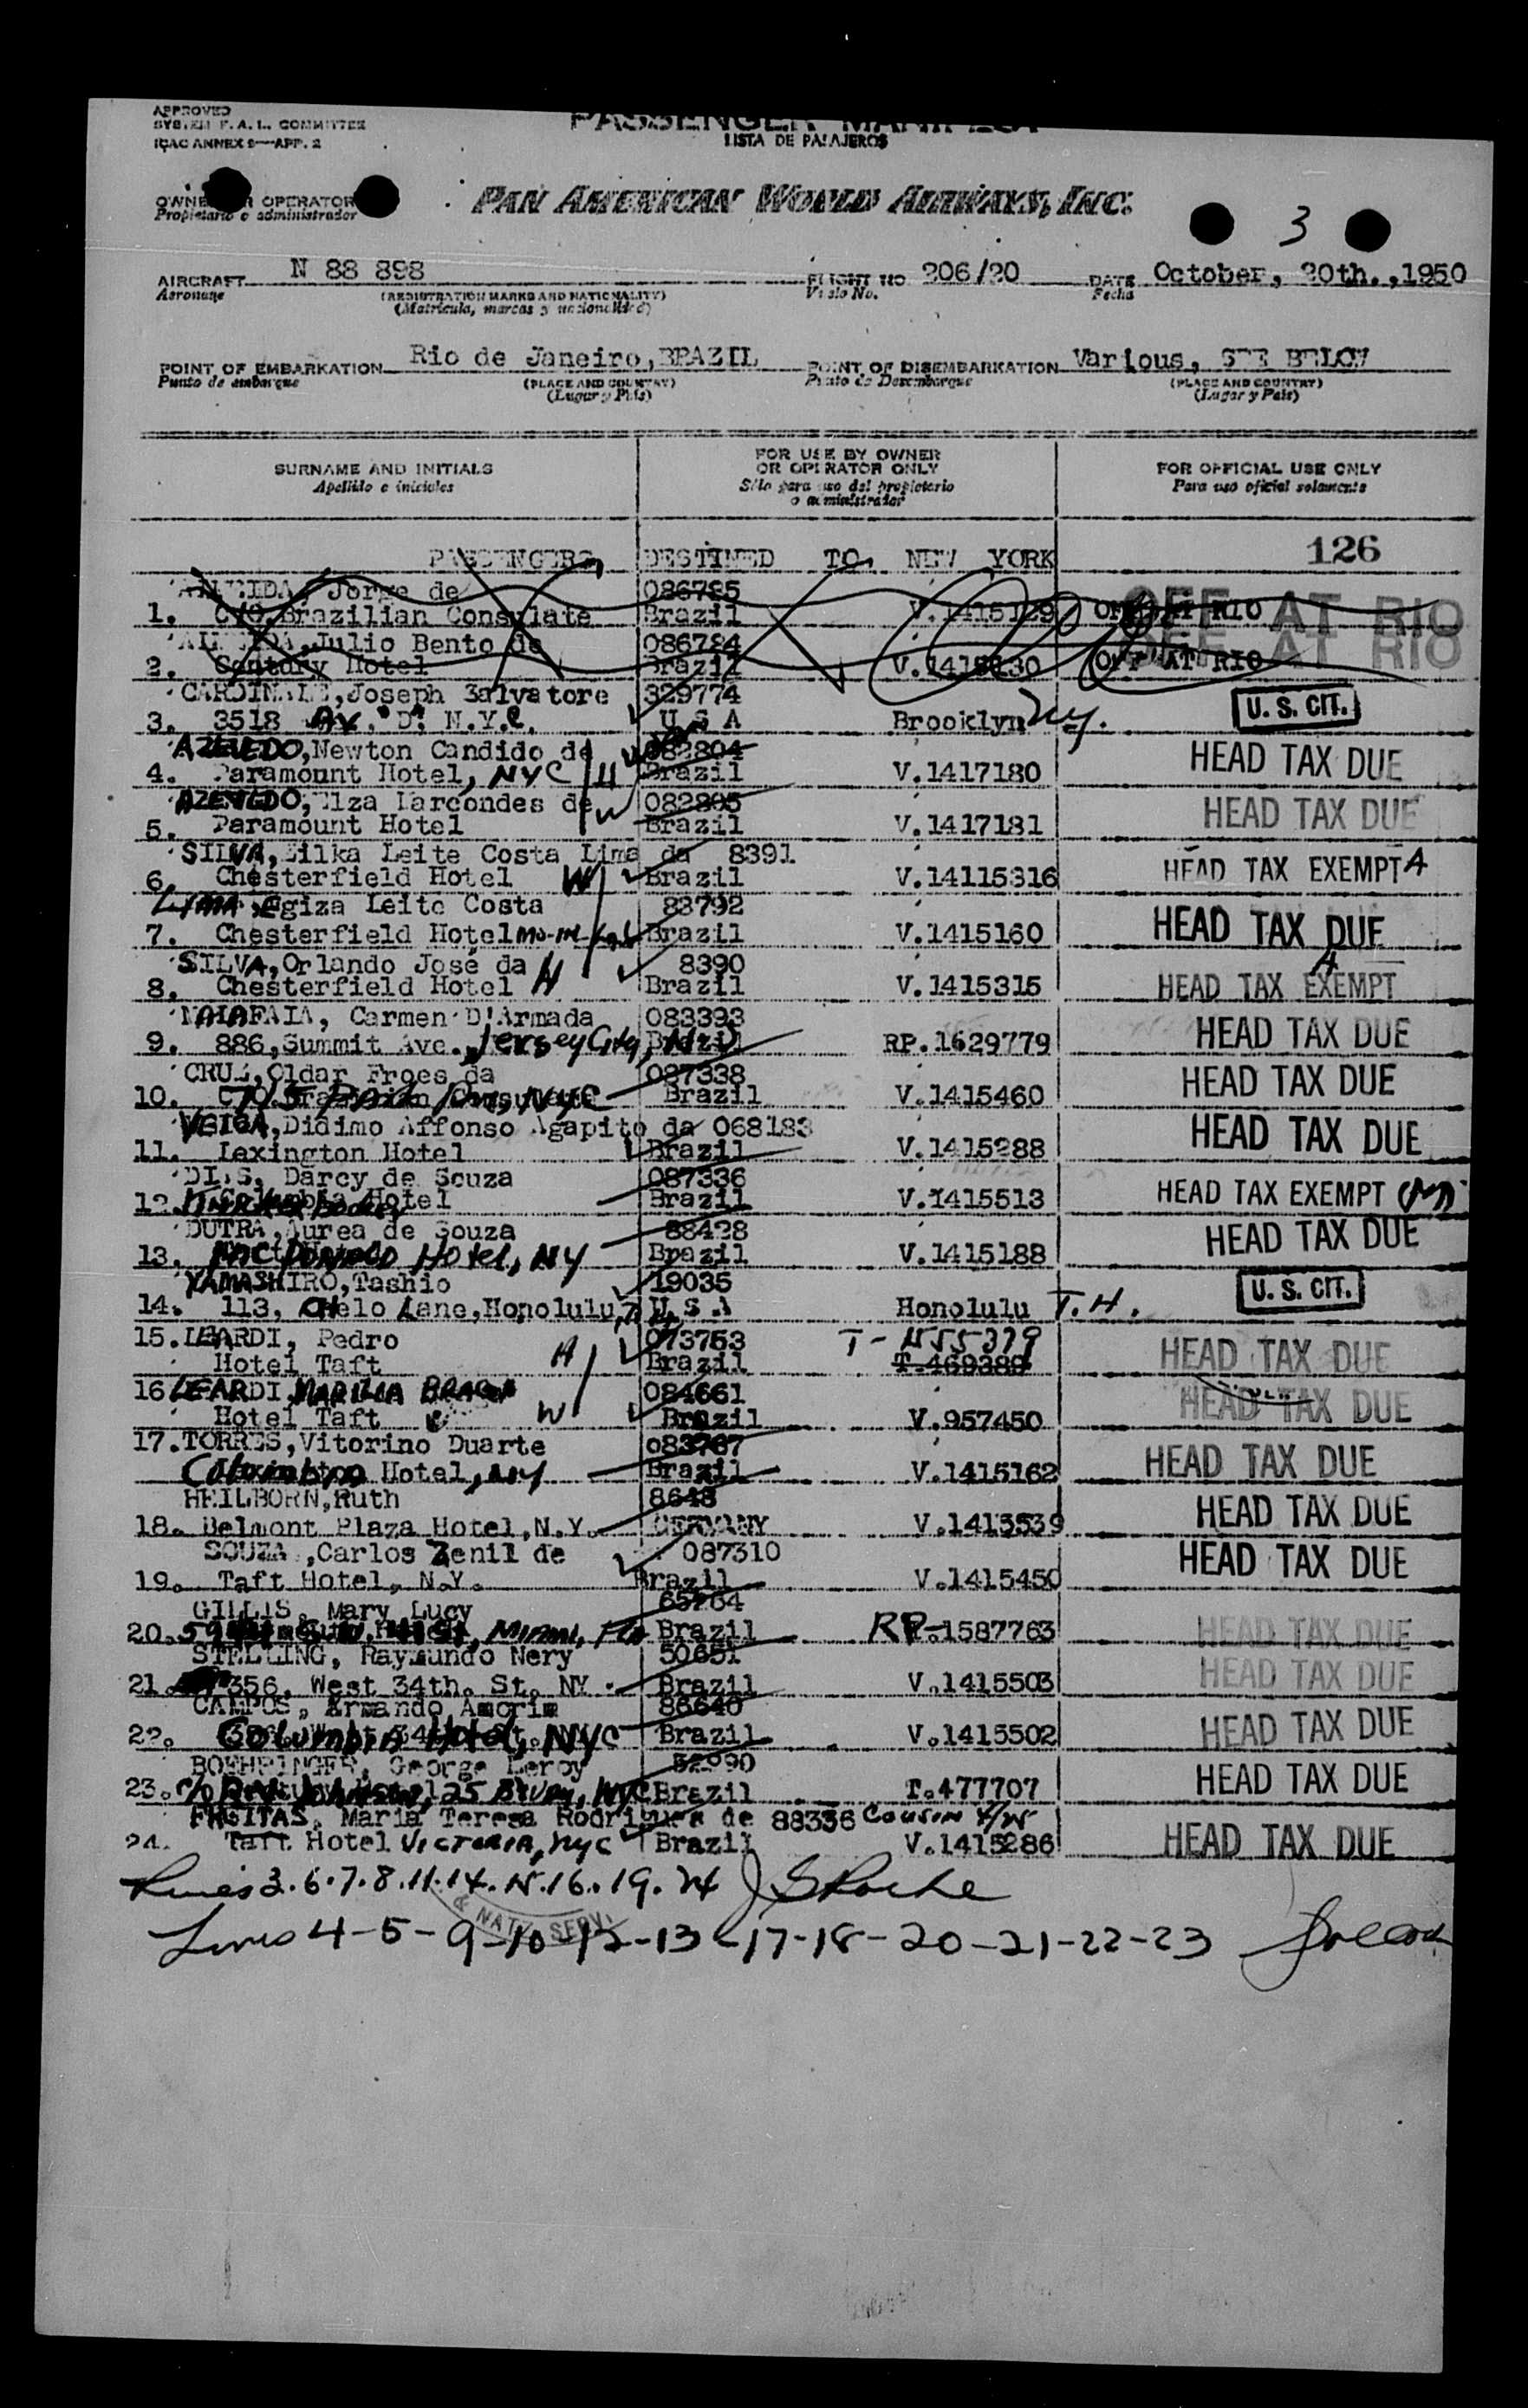 APPROVED
SYSTEM F. A. L. COMMITTEE
ICAO ANNEX 9—APP. 2
PASSENGER MANIFEST
LISTA DE PASAJEROS
OWNER OR OPERATOR
Propietario o administrador
PAN AMERICAN WORLD AIRWAYS, INC.
3
AIRCRAFT N 88 898 FLIGHT NO 206/20 DATE October, 20th.,1950
Aeronave (REGISTRATION MARKS AND NATIONALITY) Vuelo No. Fecha
(Matricula, marcas y nacionalidad)
POINT OF EMBARKATION Rio de Janeiro,BRAZIL POINT OF DISEMBARKATION Various, SEE BELOW
Punto de embarque (PLACE AND COUNTRY) Punto de Desembarque (PLACE AND COUNTRY)
(Lugar y País) (Lugar y País)
SURNAME AND INITIALS FOR USE BY OWNER OR OPERATOR ONLY FOR OFFICIAL USE ONLY
Apellido e iniciales Sólo para uso del propietario o administrador Para uso oficial solamente
PASSENGERS DESTINED TO NEW YORK 126
ALMEIDA, Jorge de 086785
1. C/O Brazilian Consulate Brazil V.1415129 OFF AT RIO OFF AT RIO
ALMEIDA, Julio Bento de 086784
2. Century Hotel Brazil V.1415130 OFF AT RIO OFF AT RIO
CARDINALE,Joseph Salvatore 329774
3. 3518 Av. D. N.Y.C. U S A Brooklyn N.Y. U. S. CIT.
AZEVEDO,Newton Candido de 082804
4. Paramount Hotel, NYC H Brazil V.1417180 HEAD TAX DUE
AZEVEDO,Elza Marcondes de 082805
5. Paramount Hotel W Brazil V.1417181 HEAD TAX DUE
SILVA,Zilka Leite Costa Lima da 8391
6. Chesterfield Hotel W Brazil V.14115316 HEAD TAX EXEMPT A
LIMA,Egiza Leite Costa 83792
7. Chesterfield Hotel mo-in-law Brazil V.1415160 HEAD TAX DUE
SILVA,Orlando José da 8390
8. Chesterfield Hotel H Brazil V.1415315 HEAD TAX EXEMPT A
MALAFAIA, Carmen D'Armada 083393
9. 886,Summit Ave., Jersey City, NJ Brazil RP.1629779 HEAD TAX DUE
CRUZ,Oldar Froes da 087338
10. NYC Brazil V.1415460 HEAD TAX DUE
VEIGA,Didimo Affonso Agapito da 068183
11. Lexington Hotel Brazil V.1415288 HEAD TAX DUE
DIAS, Darcy de Souza 087336
12. Hotel Brazil V.1415513 HEAD TAX EXEMPT
DUTRA,Aurea de Souza 88428
13. Hotel, NY Brazil V.1415188 HEAD TAX DUE
YAMASHIRO,Tashio 19035
14. 113, Chelo Lane,Honolulu, U.S.A Honolulu T.H. U. S. CIT.
15.LEARDI, Pedro 073753 T-1555379
Hotel Taft H Brazil T.469389 HEAD TAX DUE
16 LEARDI MARILIA BRAGA 084661
Hotel Taft W Brazil V.957450 HEAD TAX DUE
17.TORRES,Vitorino Duarte 083767
Columbia Hotel, NY Brazil V.1415162 HEAD TAX DUE
HEILBORN,Ruth 8648
18. Belmont Plaza Hotel,N.Y. GERMANY V.1415539 HEAD TAX DUE
SOUZA,Carlos Zenil de 087310
19. Taft Hotel, N.Y. Brazil V.1415450 HEAD TAX DUE
GILLIS, Mary Lucy 65264
20. Miami, Fla Brazil RP.1587763 HEAD TAX DUE
STELLING, Raymundo Nery 50651
21. 356, West 34th. St. NY Brazil V.1415503 HEAD TAX DUE
CAMPOS, Armando Amorim 86640
22. Columbia Hotel, NYC Brazil V.1415502 HEAD TAX DUE
BOEHRINGER, George Leroy 52990
23. c/o Johnson, 25 NYC Brazil T.477707 HEAD TAX DUE
FREITAS, Maria Teresa Rodrigues de 88336 Cousin
24. Taft Hotel VICTORIA, NYC Brazil V.1415286 HEAD TAX DUE
Lines 3.6.7.8.11.14.15.16.19.24 J S Roche
& NATZ. SERV.
Lines 4-5-9-10-12-13-17-18-20-21-22-23